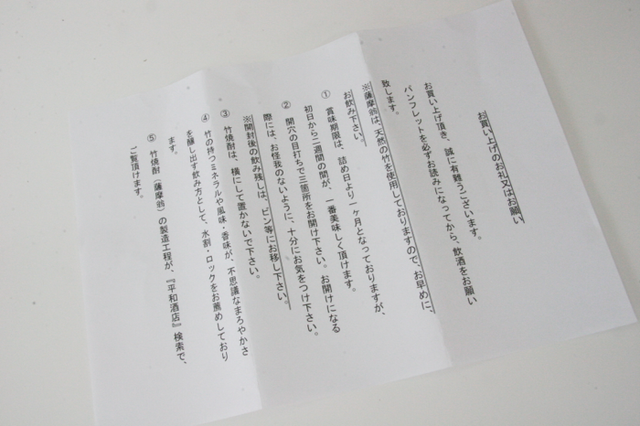 お買い上げのお礼又はお願い
お買い上げ頂き、誠に有難うございます。
パンフレットを必ずお読みになってから、飲酒をお願い
致します。
※薩摩翁は、天然の竹を使用しておりますので、お早めに、
お飲み下さい。
① 賞味期限は、詰め日より一ヶ月となっておりますが、
初日から二週間の間が、一番美味しく頂けます。
② 開穴の目打ちで三箇所をお開け下さい。お開けになる
際には、お怪我のないように、十分にお気をつけ下さい。
※開封後の飲み残しは、ビン等にお移し下さい。
③ 竹焼酎は、横にして置かないで下さい。
④ 竹の持つミネラルや風味・香味が、不思議なまろやかさ
を醸し出す飲み方として、水割・ロックをお薦めしており
ます。
⑤ 竹焼酎（薩摩翁）の製造工程が、『平和酒店』検索で、
ご覧頂けます。